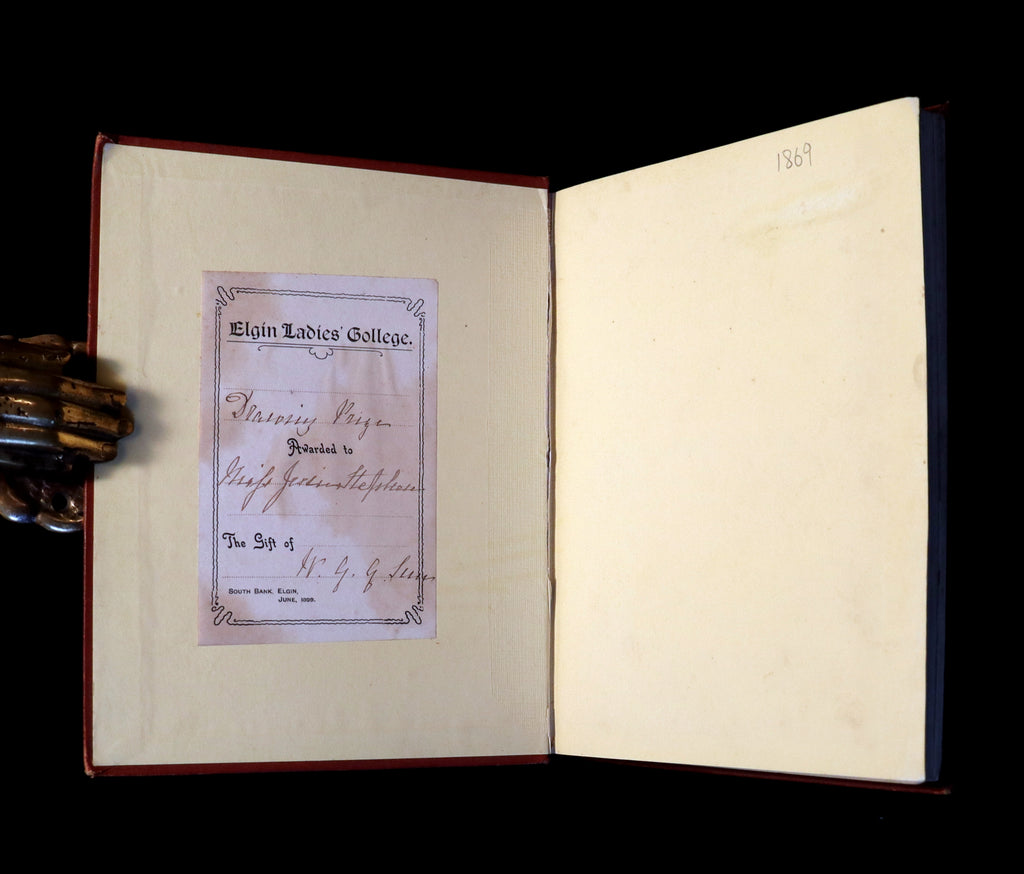 Elgin Ladies' College.
Drawing Prize
Awarded to
Miss Jessie Stephen
The Gift of
W. G. G.
South Bank, Elgin,
June, 1899.
1869